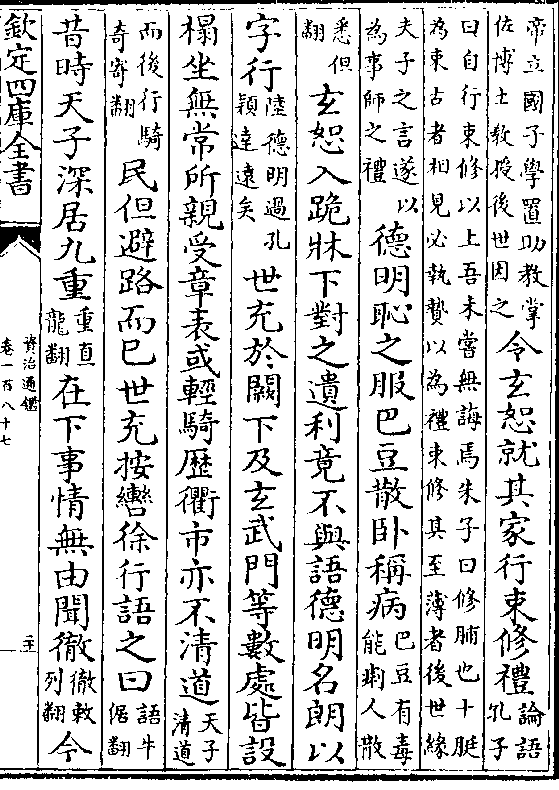 帝立國子學置助教掌
佐博士教授後世因之
令玄恕就其家行束修禮
論語
孔子
曰自行束修以上吾未嘗無誨焉朱子曰修脯也十脡
為束古者相見必執贄以為禮束修其至薄者後世緣
夫子之言遂以
為事師之禮
德明恥之服巴豆散卧稱病
巴豆有毒
能痢人散
悉但
翻
玄恕入跪牀下對之遺利竟不與語德明名朗以
字行
陸德明過孔
穎達遠矣
世充於闕下及玄武門等數處皆設
榻坐無常所親受章表或輕騎歷衢市亦不清道
天子
清道
而後行騎
奇寄翻
民但避路而已世充按轡徐行語之曰
語牛
倨翻
昔時天子深居九重
重直
龍翻
在下事情無由聞徹
徹敕
列翻
今
欽定四庫全書
資治通鑑
卷一百八十七